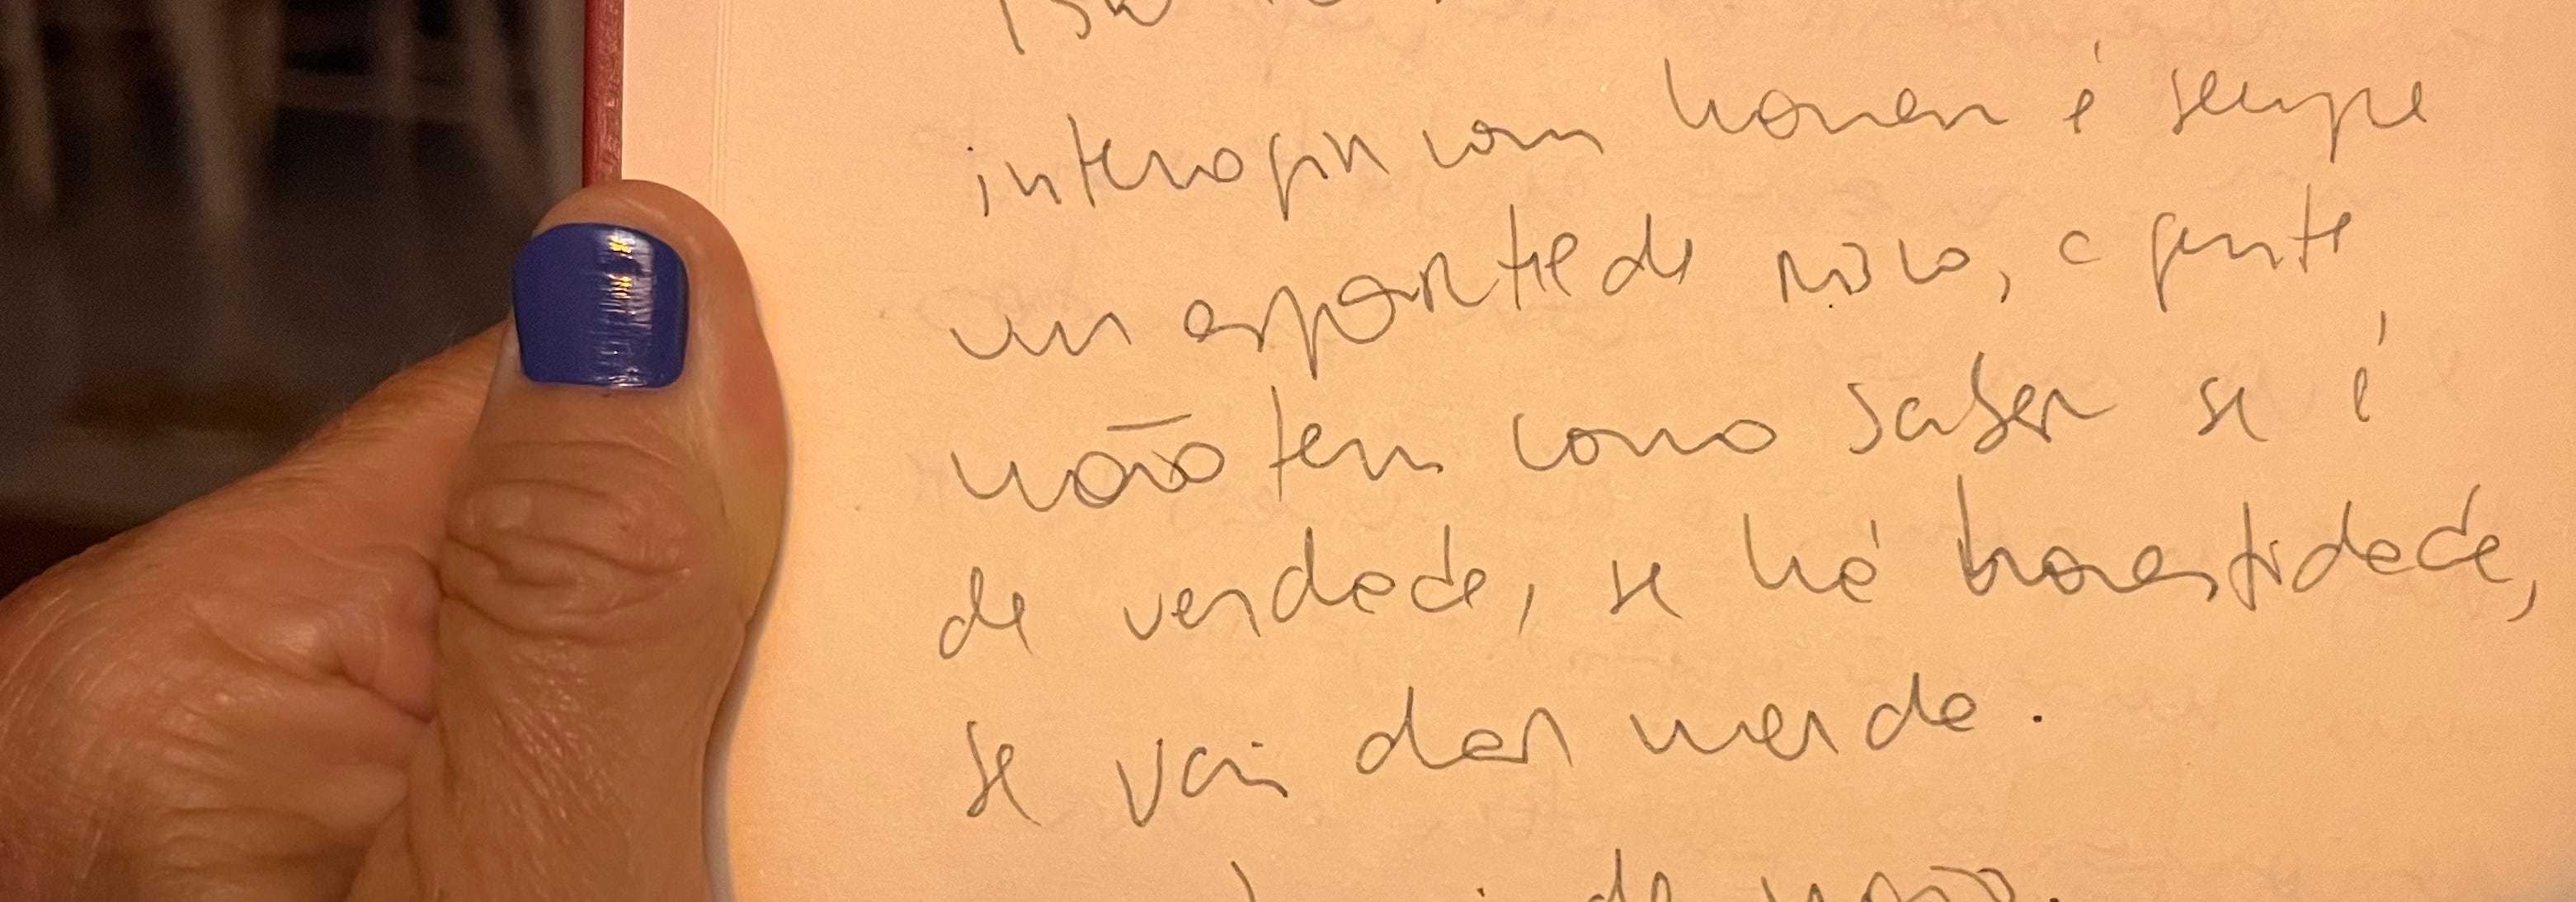 interagir com homem é sempre
um esporte de risco, a gente
não tem como saber se é
de verdade, se há honestidade,
se vai dar merda.